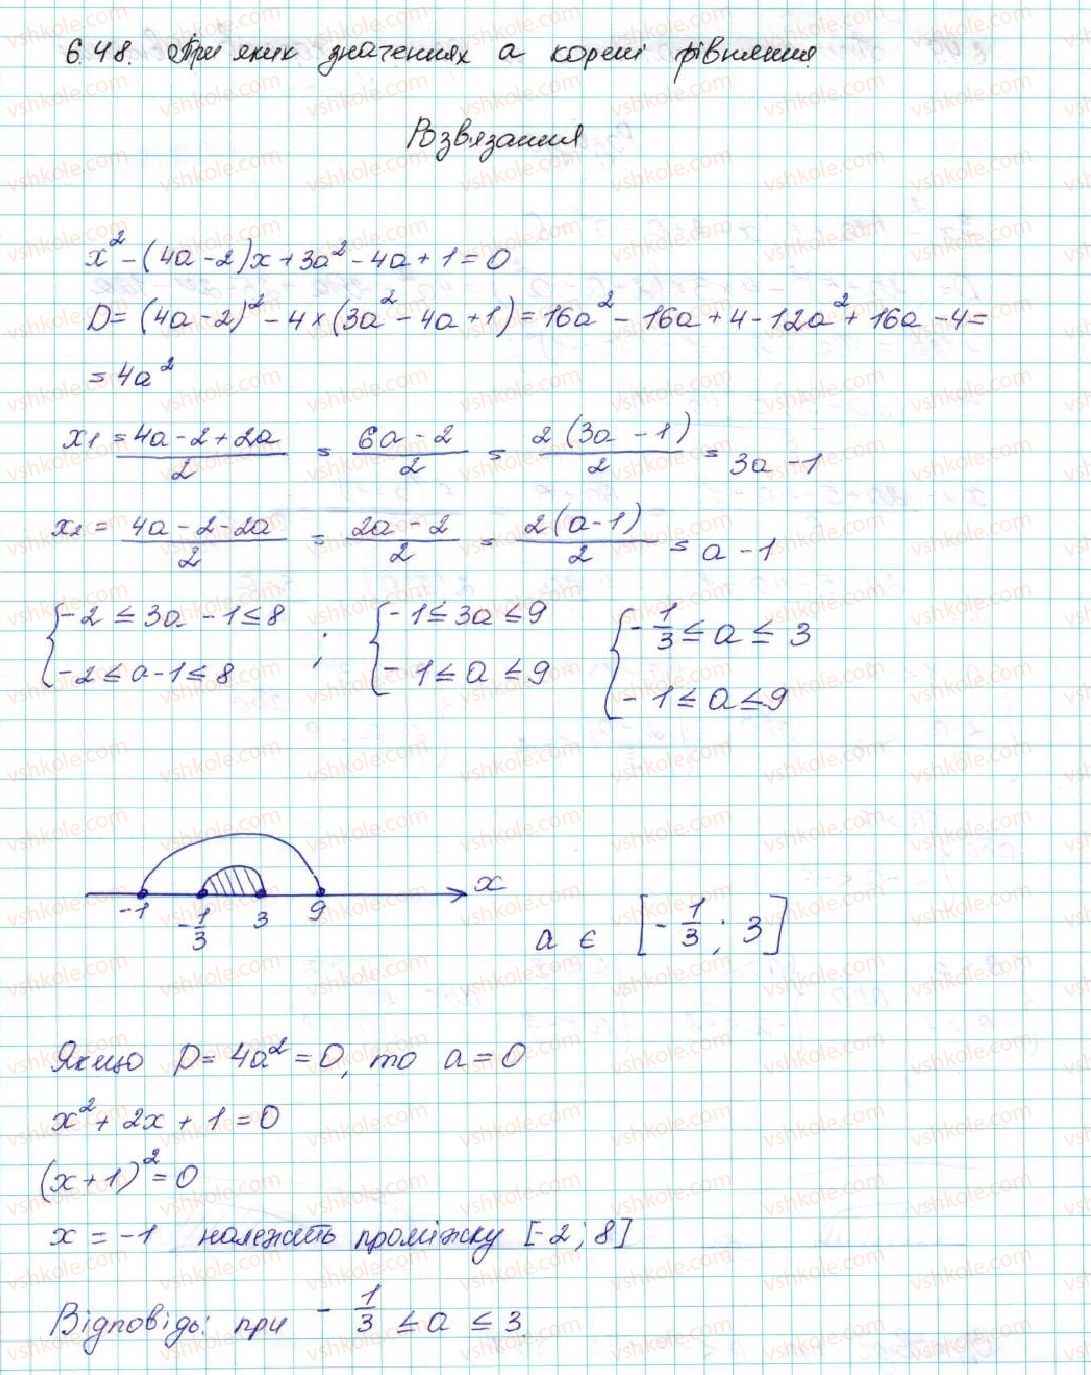 6.48. При яких значеннях a корені рівняння
Розвязання
x² - (4a - 2)x + 3a² - 4a + 1 = 0
D = (4a - 2)² - 4 × (3a² - 4a + 1) = 16a² - 16a + 4 - 12a² + 16a - 4 =
= 4a²
x₁ = (4a - 2 + 2a)/2 = (6a - 2)/2 = 2(3a - 1)/2 = 3a - 1
x₂ = (4a - 2 - 2a)/2 = (2a - 2)/2 = 2(a - 1)/2 = a - 1
{ -2 ≤ 3a - 1 ≤ 8 ; { -1 ≤ 3a ≤ 9 { -1/3 ≤ a ≤ 3
{ -2 ≤ a - 1 ≤ 8 { -1 ≤ a ≤ 9 { -1 ≤ a ≤ 9
x
-1 -1/3 3 9
a є [-1/3; 3]
Якщо D = 4a² = 0, то a = 0
x² + 2x + 1 = 0
(x + 1)² = 0
x = -1 належить проміжку [-2; 8]
Відповідь: при -1/3 ≤ a ≤ 3
vshkole.com